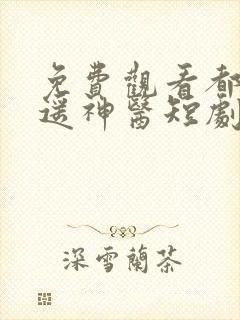 免費觀看都
遥神醫短劇
深雪蘭茶